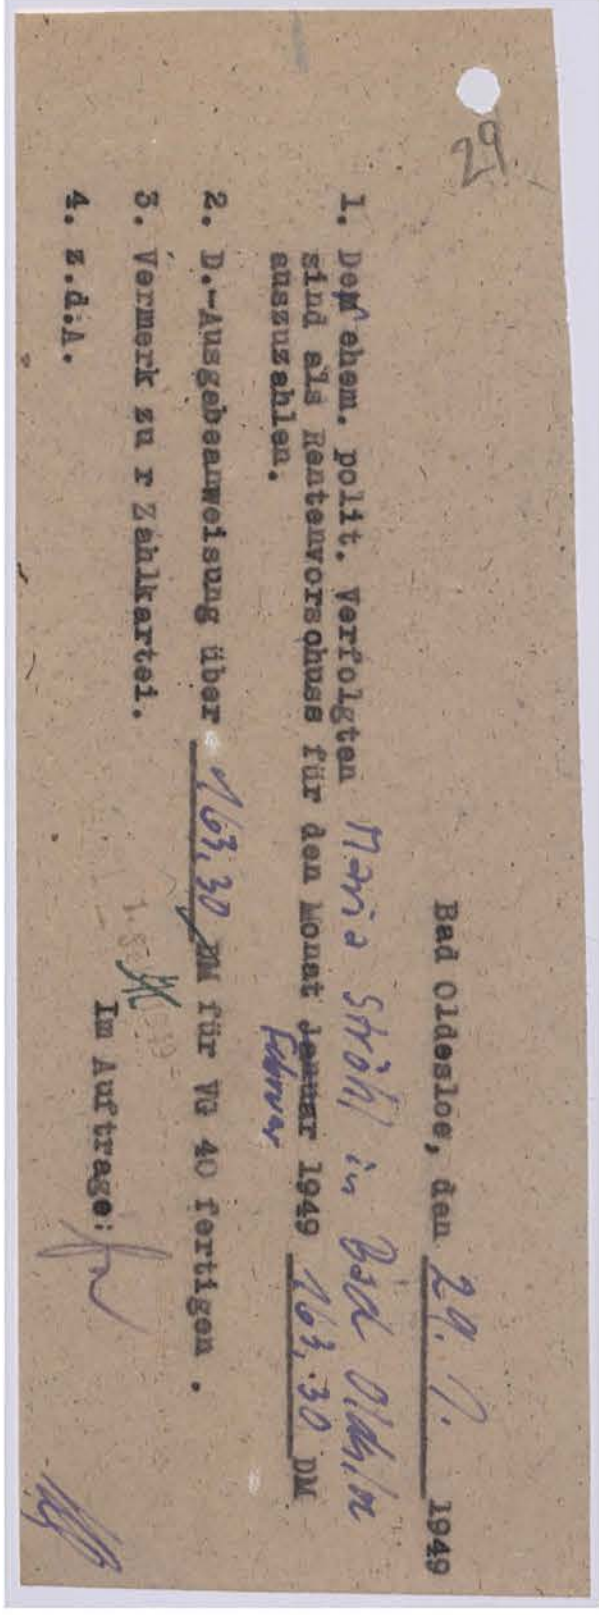 29
Bad Oldesloe, den 29. 1. 1949
1. Der ehem. polit. Verfolgten Maria Ströhl in Bad Oldesloe
sind als Rentenvorschuss für den Monat Januar 1949 163,30 DM
Februar
auszuzahlen.
2. D.-Ausgabeanweisung über 163,30 DM für VG 40 fertigen .
3. Vermerk zu r Zahlkartei.
4. z.d.A.
Im Auftrage: